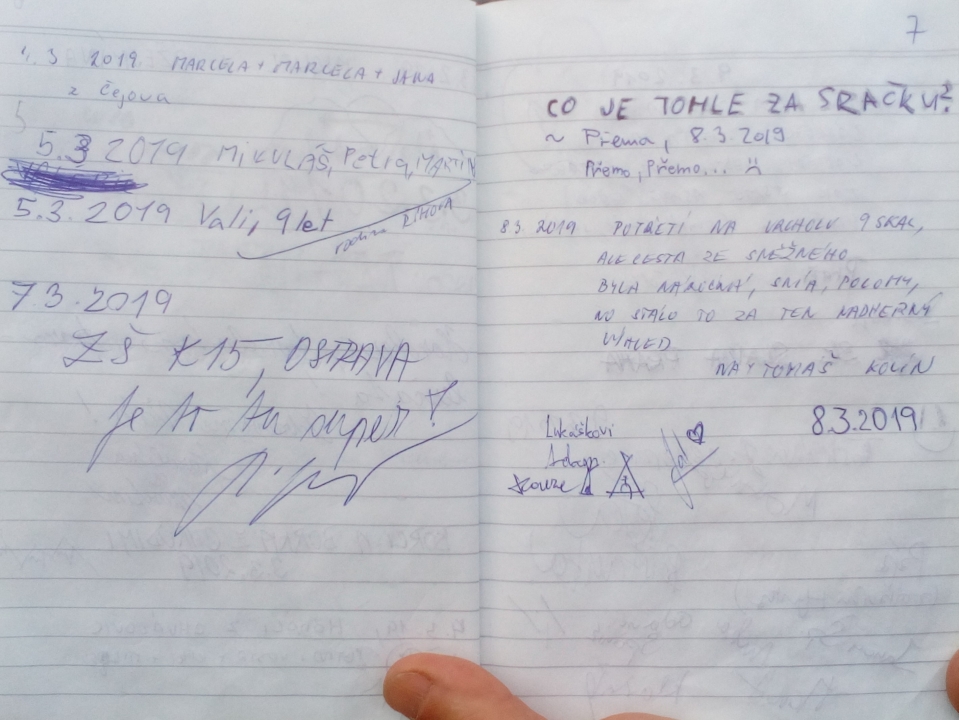 4.3 2019 MARCELA + MARCELA + JANA
z Čejova
5.3 2019 MIKULÁŠ, Petra, MARTIN
5.3.2019 Vali, 9 let
rodina ŘÍHOVA
7.3.2019
ZŠ K15, OSTRAVA
Je to tu super!
7
CO JE TOHLE ZA SRAČKU?
~ Přema, 8.3.2019
Přemo, Přemo... :(
8.3. 2019 POTŘETÍ NA VRCHOLU 9 SKAL,
ALE CESTA ZE SNĚŽNÉHO
BYLA NÁROČNÁ, POLOMY,
NO STÁLO TO ZA TEN NÁDHERNÝ
VÝHLED
TOMÁŠ KOLÍN
Lukáškovi 8.3.2019